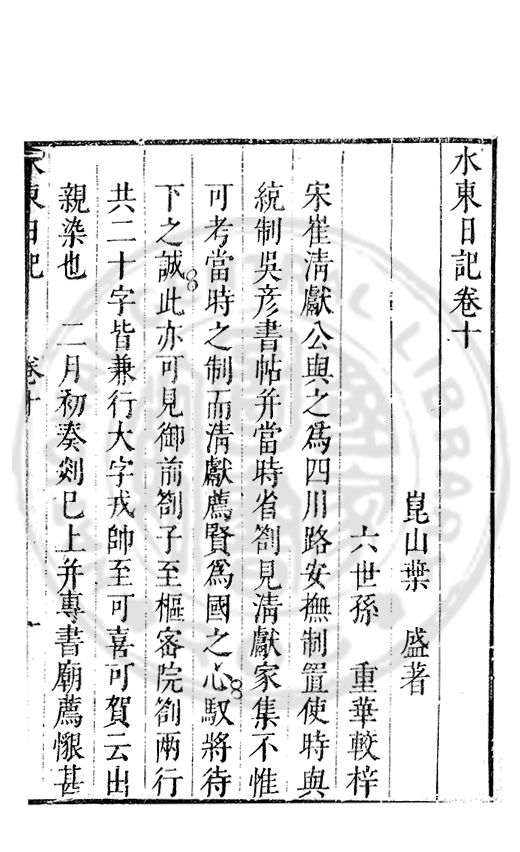 水東日記卷十
崑山葉　盛著
六世孫　重華較梓
宋崔淸獻公與之爲四川路安撫制置使時與
統制吳彥書帖并當時省劄見淸獻家集不惟
可考當時之制而淸獻薦賢爲國之心馭將待
下之誠此亦可見御前劄子至樞密院劄兩行
共二十字皆兼行大字戎帥至可喜可賀云出
親染也　二月初奏剡已上并專書廟薦懇甚
水東日記　卷十　一